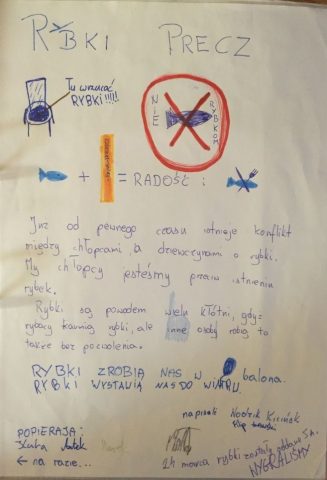 RYBKI PRECZ
Tu wrzucać
RYBKI!!!!
NIE
RYBKOM
+ = RADOŚĆ :
Już od pewnego czasu istnieje konflikt
między chłopcami, a dziewczynami o rybki.
My chłopcy jesteśmy przeciw istnieniu
rybek.
Rybki są powodem wielu kłótni, gdyż
rybacy karmią rybki, ale inne osoby robią to
także bez pozwolenia.
RYBKI ZROBIĄ NAS W balona.
RYBKI WYSTAWIĄ NAS DO WIATRU.
napisał:
POPIERAJĄ:
← na razie...
24 marca rybki zostały oddane
WYGRALIŚMY